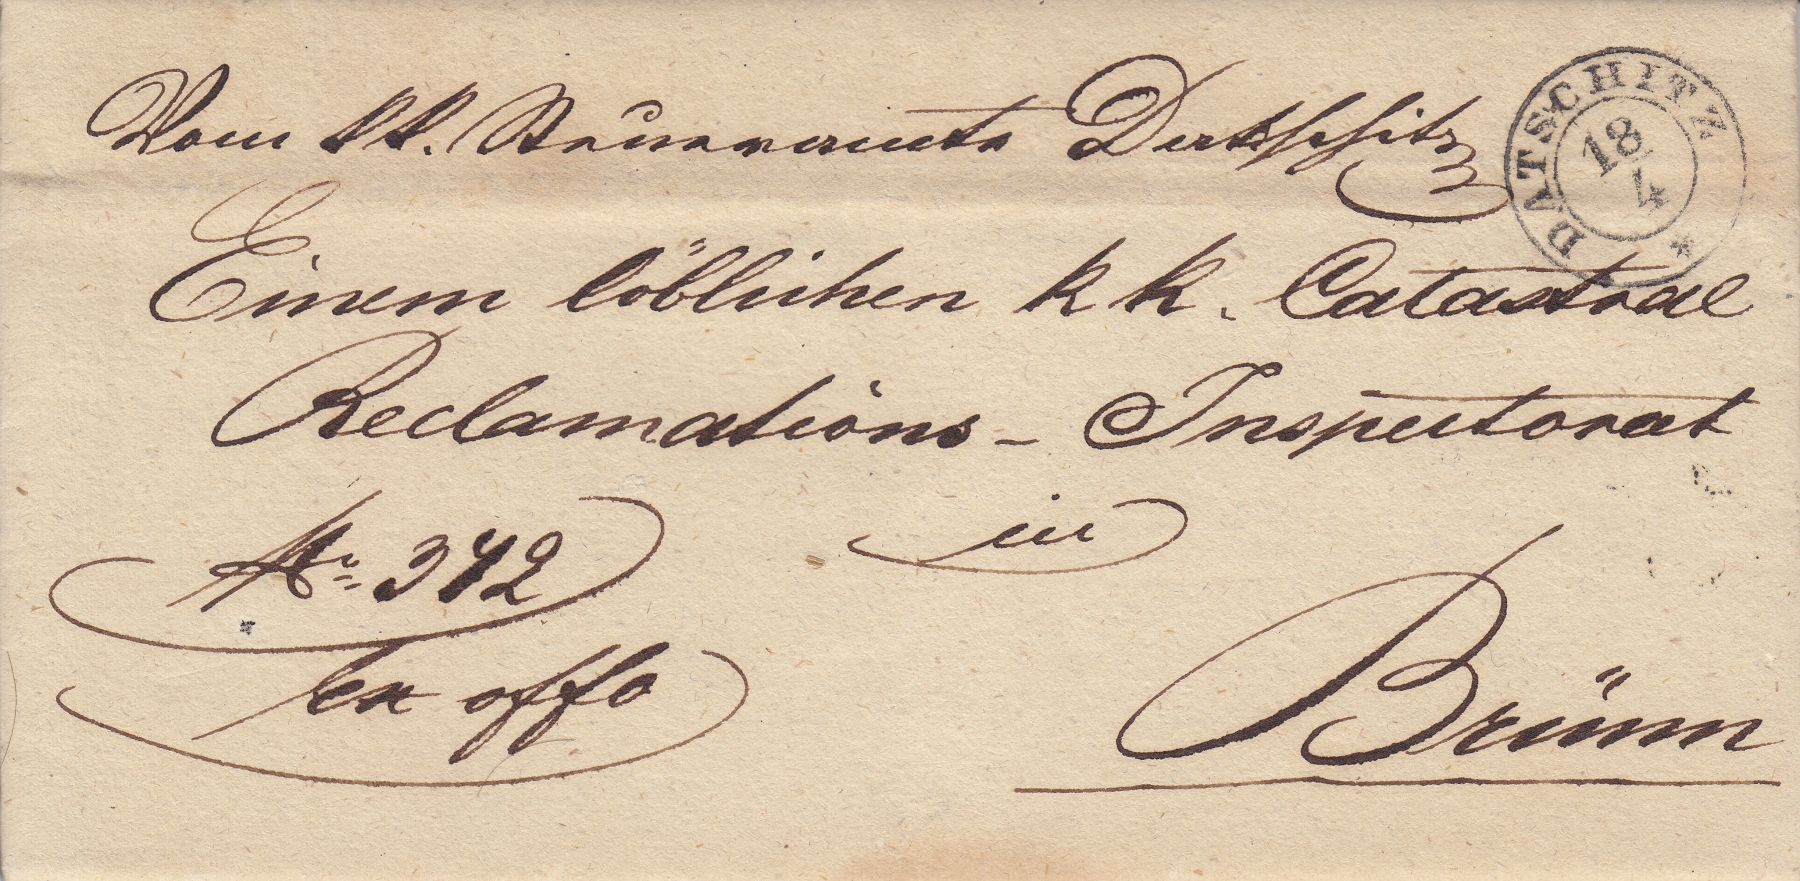 Vom k k. Steueramte Datschitz
DATSCHITZ
18
4
Einem löblichen k k. Catastral
Reclamations - Inspectorat
Nr. 342
in
ex offo
Brünn